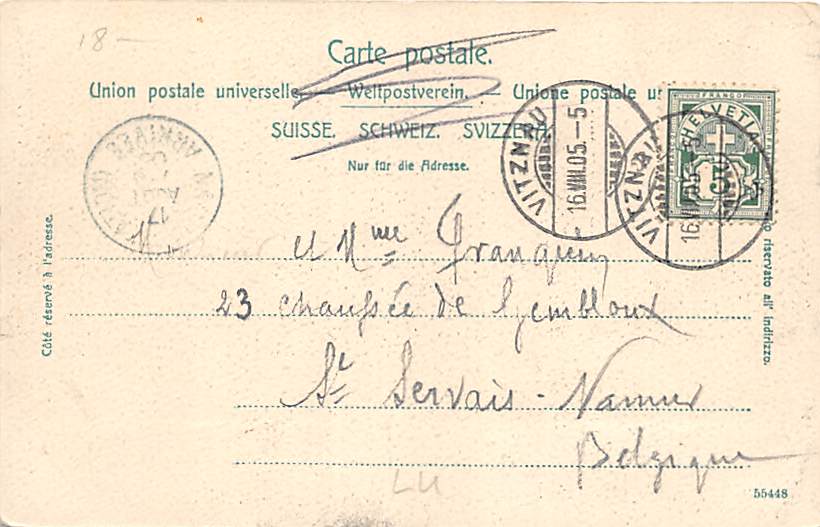 18 —
Carte postale.
Union postale universelle. — Weltpostverein. — Unione postale un
SUISSE. SCHWEIZ. SVIZZERA.
Nur für die Adresse.
FRANCO
HELVETIA
5
VITZNAU
16.VIII.05.-5
VITZNAU
16.VIII.05.-5
ARRIVÉE
17
AOUT
Côté réservé à l'adresse.
to riservato all' indirizzo.
M et Mme Franquin
23 chaussée de Gembloux
St Servais - Namur
Belgique
LU
55448